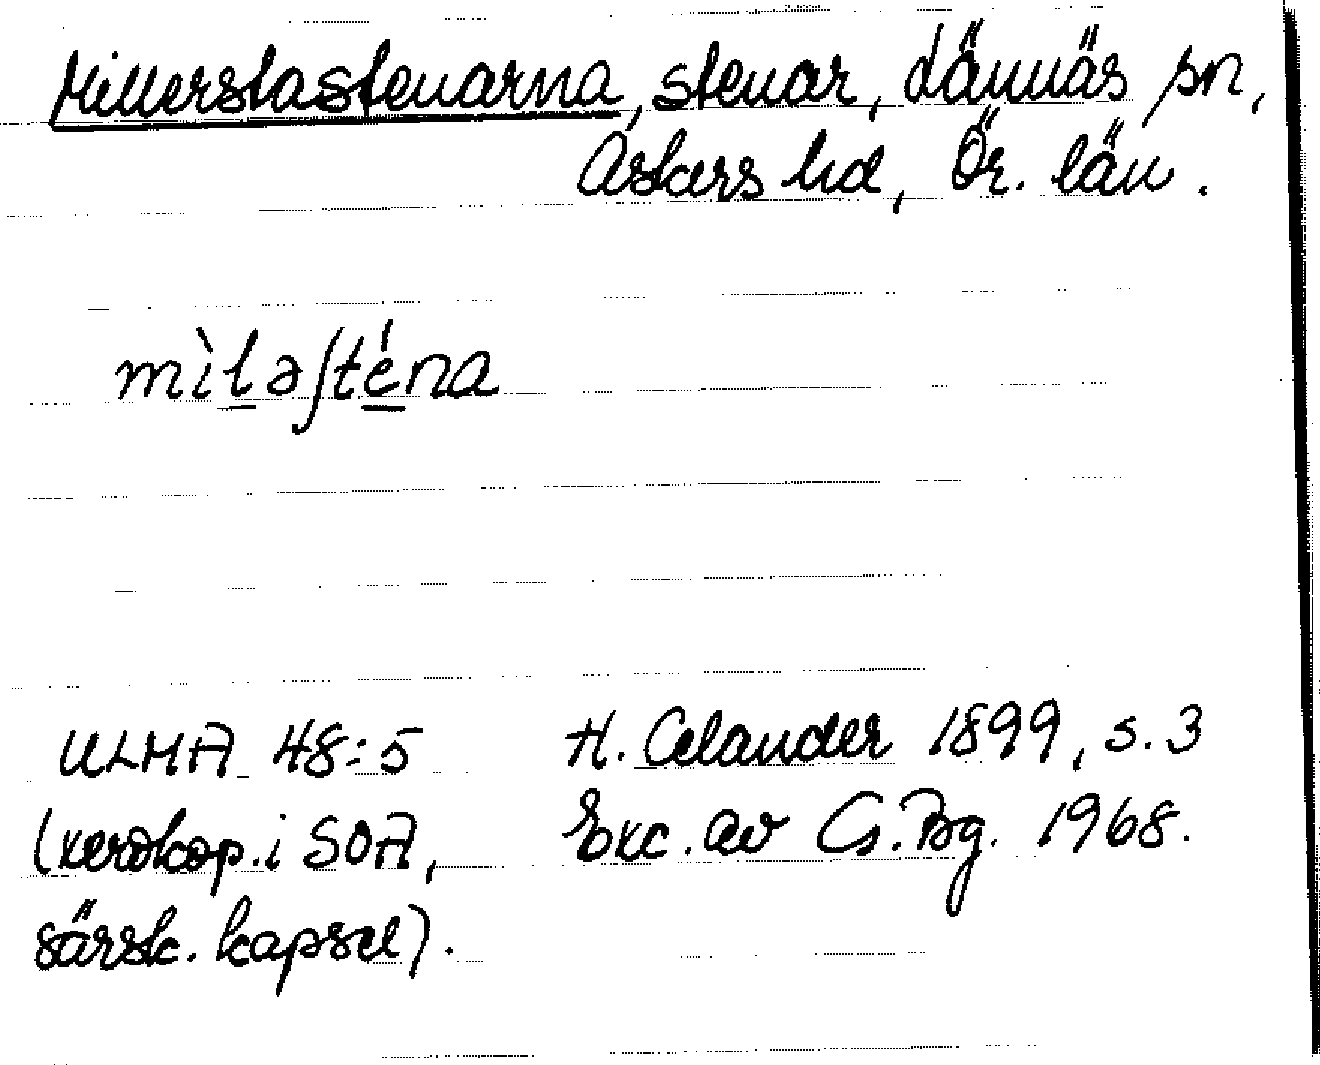 Millerstastenarna, stenar, Lännäs sn,
Askers hd, Ör. län.
mìlaʃténa
ULMA 48:5 H. Celander 1899, s. 3
(xerokop. i SOA, Exc. av G. Bg. 1968.
särsk. kapsel).